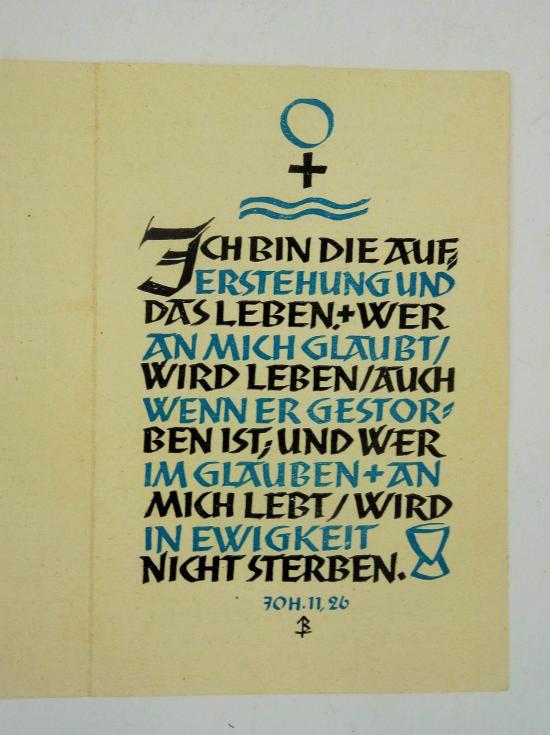 ICH BIN DIE AUF=
ERSTEHUNG UND
DAS LEBEN.+WER
AN MICH GLAUBT/
WIRD LEBEN/AUCH
WENN ER GESTOR=
BEN IST; UND WER
IM GLAUBEN+AN
MICH LEBT/WIRD
IN EWIGKEIT
NICHT STERBEN.
JOH. 11, 26